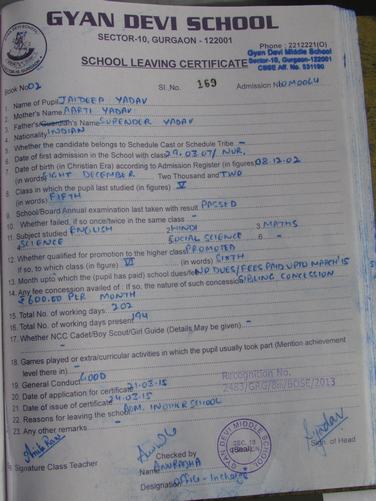 GYAN DEVI SCHOOL
SECTOR-10, GURGAON - 122001
Phone : 2212221(O)
Gyan Devi Middle School
Sector-10, Gurgaon-122001
CBSE Aff. No. 531190
SCHOOL LEAVING CERTIFICATE
Book No 02 Sl. No. 169 Admission No
1. Name of Pupil JAIDEEP YADAV
2. Mother's Name AARTI YADAV
3. Father's/Guardian's Name SUPENDER YADAV
4. Nationality INDIAN
5. Whether the candidate belongs to Schedule Cast or Schedule Tribe -
6. Date of first admission in the School with class 29.03.07/ NUR.
7. Date of birth (in Christian Era) according to Admission Register (in figures) 08.12.02
(in words) EIGHT DECEMBER Two Thousand and TWO
8. Class in which the pupil last studied (in figures) V
(in words) FIFTH
9. School/Board Annual examination last taken with result PASSED
10. Whether failed, if so once/twice in the same class -
11. Subject studied ENGLISH 2. HINDI 3. MATHS
SCIENCE SOCIAL SCIENCE 6. -
12. Whether qualified for promotion to the higher class PROMOTED
If so, to which class (in figures) VI (in words) SIXTH
13. Month upto which the (pupil has paid) school dues/fee NO DUES/FEES PAID UPTO MARCH'15
14. Any fee concession availed of : if so, the nature of such concession SIBLING CONCESSION
₹600.00 PER MONTH
15. Total No. of working days 202
16. Total No. of working days present 194
17. Whether NCC Cadet/Boy Scout/Girl Guide (Details May be given) -
18. Games played or extra/curricular activities in which the pupil usually took part (Mention achievement
level there in) -
19. General Conduct GOOD
20. Date of application for certificate 21.03.15
21. Date of issue of certificate 24.03.15
22. Reasons for leaving the school ADM. IN OTHER SCHOOL
23. Any other remarks -
Recognition No.
Signature Class Teacher
Checked by
Name ANURADHA
Designation Office - Incharge
Sign. of Head
GYAN DEVI MIDDLE SCHOOL